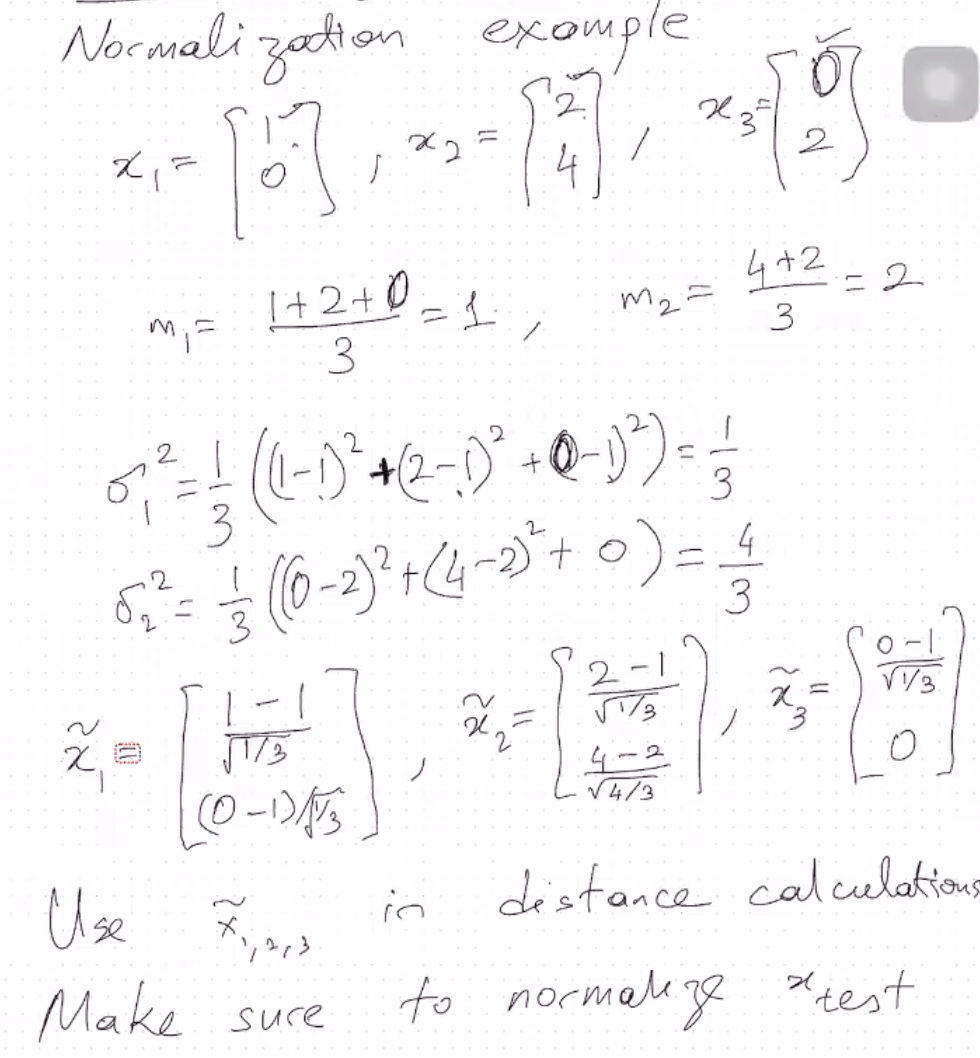 Normalization example
x₁ = [1 0], x₂ = [2 4], x₃ = [0 2]
m₁ = (1+2+0)/3 = 1, m₂ = (4+2)/3 = 2
σ₁² = 1/3 ((1-1)² + (2-1)² + 0-1)²) = 1/3
σ₂² = 1/3 ((0-2)² + (4-2)² + 0) = 4/3
x̃₁ = [(1-1)/√1/3 (0-1)/√1/3], x̃₂ = [(2-1)/√1/3 (4-2)/√4/3], x̃₃ = [(0-1)/√1/3 0]
Use x̃₁,₂,₃ in distance calculations
Make sure to normalize x test